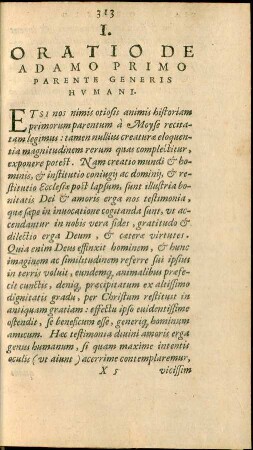 323
I.
ORATIO DE
ADAMO PRIMO
PARENTE GENERIS
HVMANI.
ETSI nos nimis otiosis animis historiam
primorum parentum à Moyse recita
tam legimus: tamen nullius creaturæ eloquen
tia magnitudinem rerum quas complectitur,
exponere potest. Nam creatio mundi & ho-
minis, & institutio coniugij ac dominij, & re-
stitutio Ecclesiæ post lapsum, sunt illustria bo-
nitatis Dei & amoris erga nos testimonia,
quæ sæpe in inuocatione cogitanda sunt, vt ac-
cendantur in nobis vera fides, gratitudo &
dilectio erga Deum, & cæteræ virtutes.
Quia enim Deus effinxit hominem, & hunc
imaginem ac similitudinem referre sui ipsius
in terris voluit, eundemq́; animalibus præfe-
cit cunctis, deniq́; præcipitatum ex altissimo
dignitatis gradu, per Christum restituit in
antiquam gratiam: effectu ipso euidentissime
ostendit, se beneficum esse, generiq́; hominum
amicum. Hæc testimonia diuini amoris erga
genus humanum, si quam maxime intentis
oculis (vt aiunt) acerrime contemplaremur,
X 5 vicissim